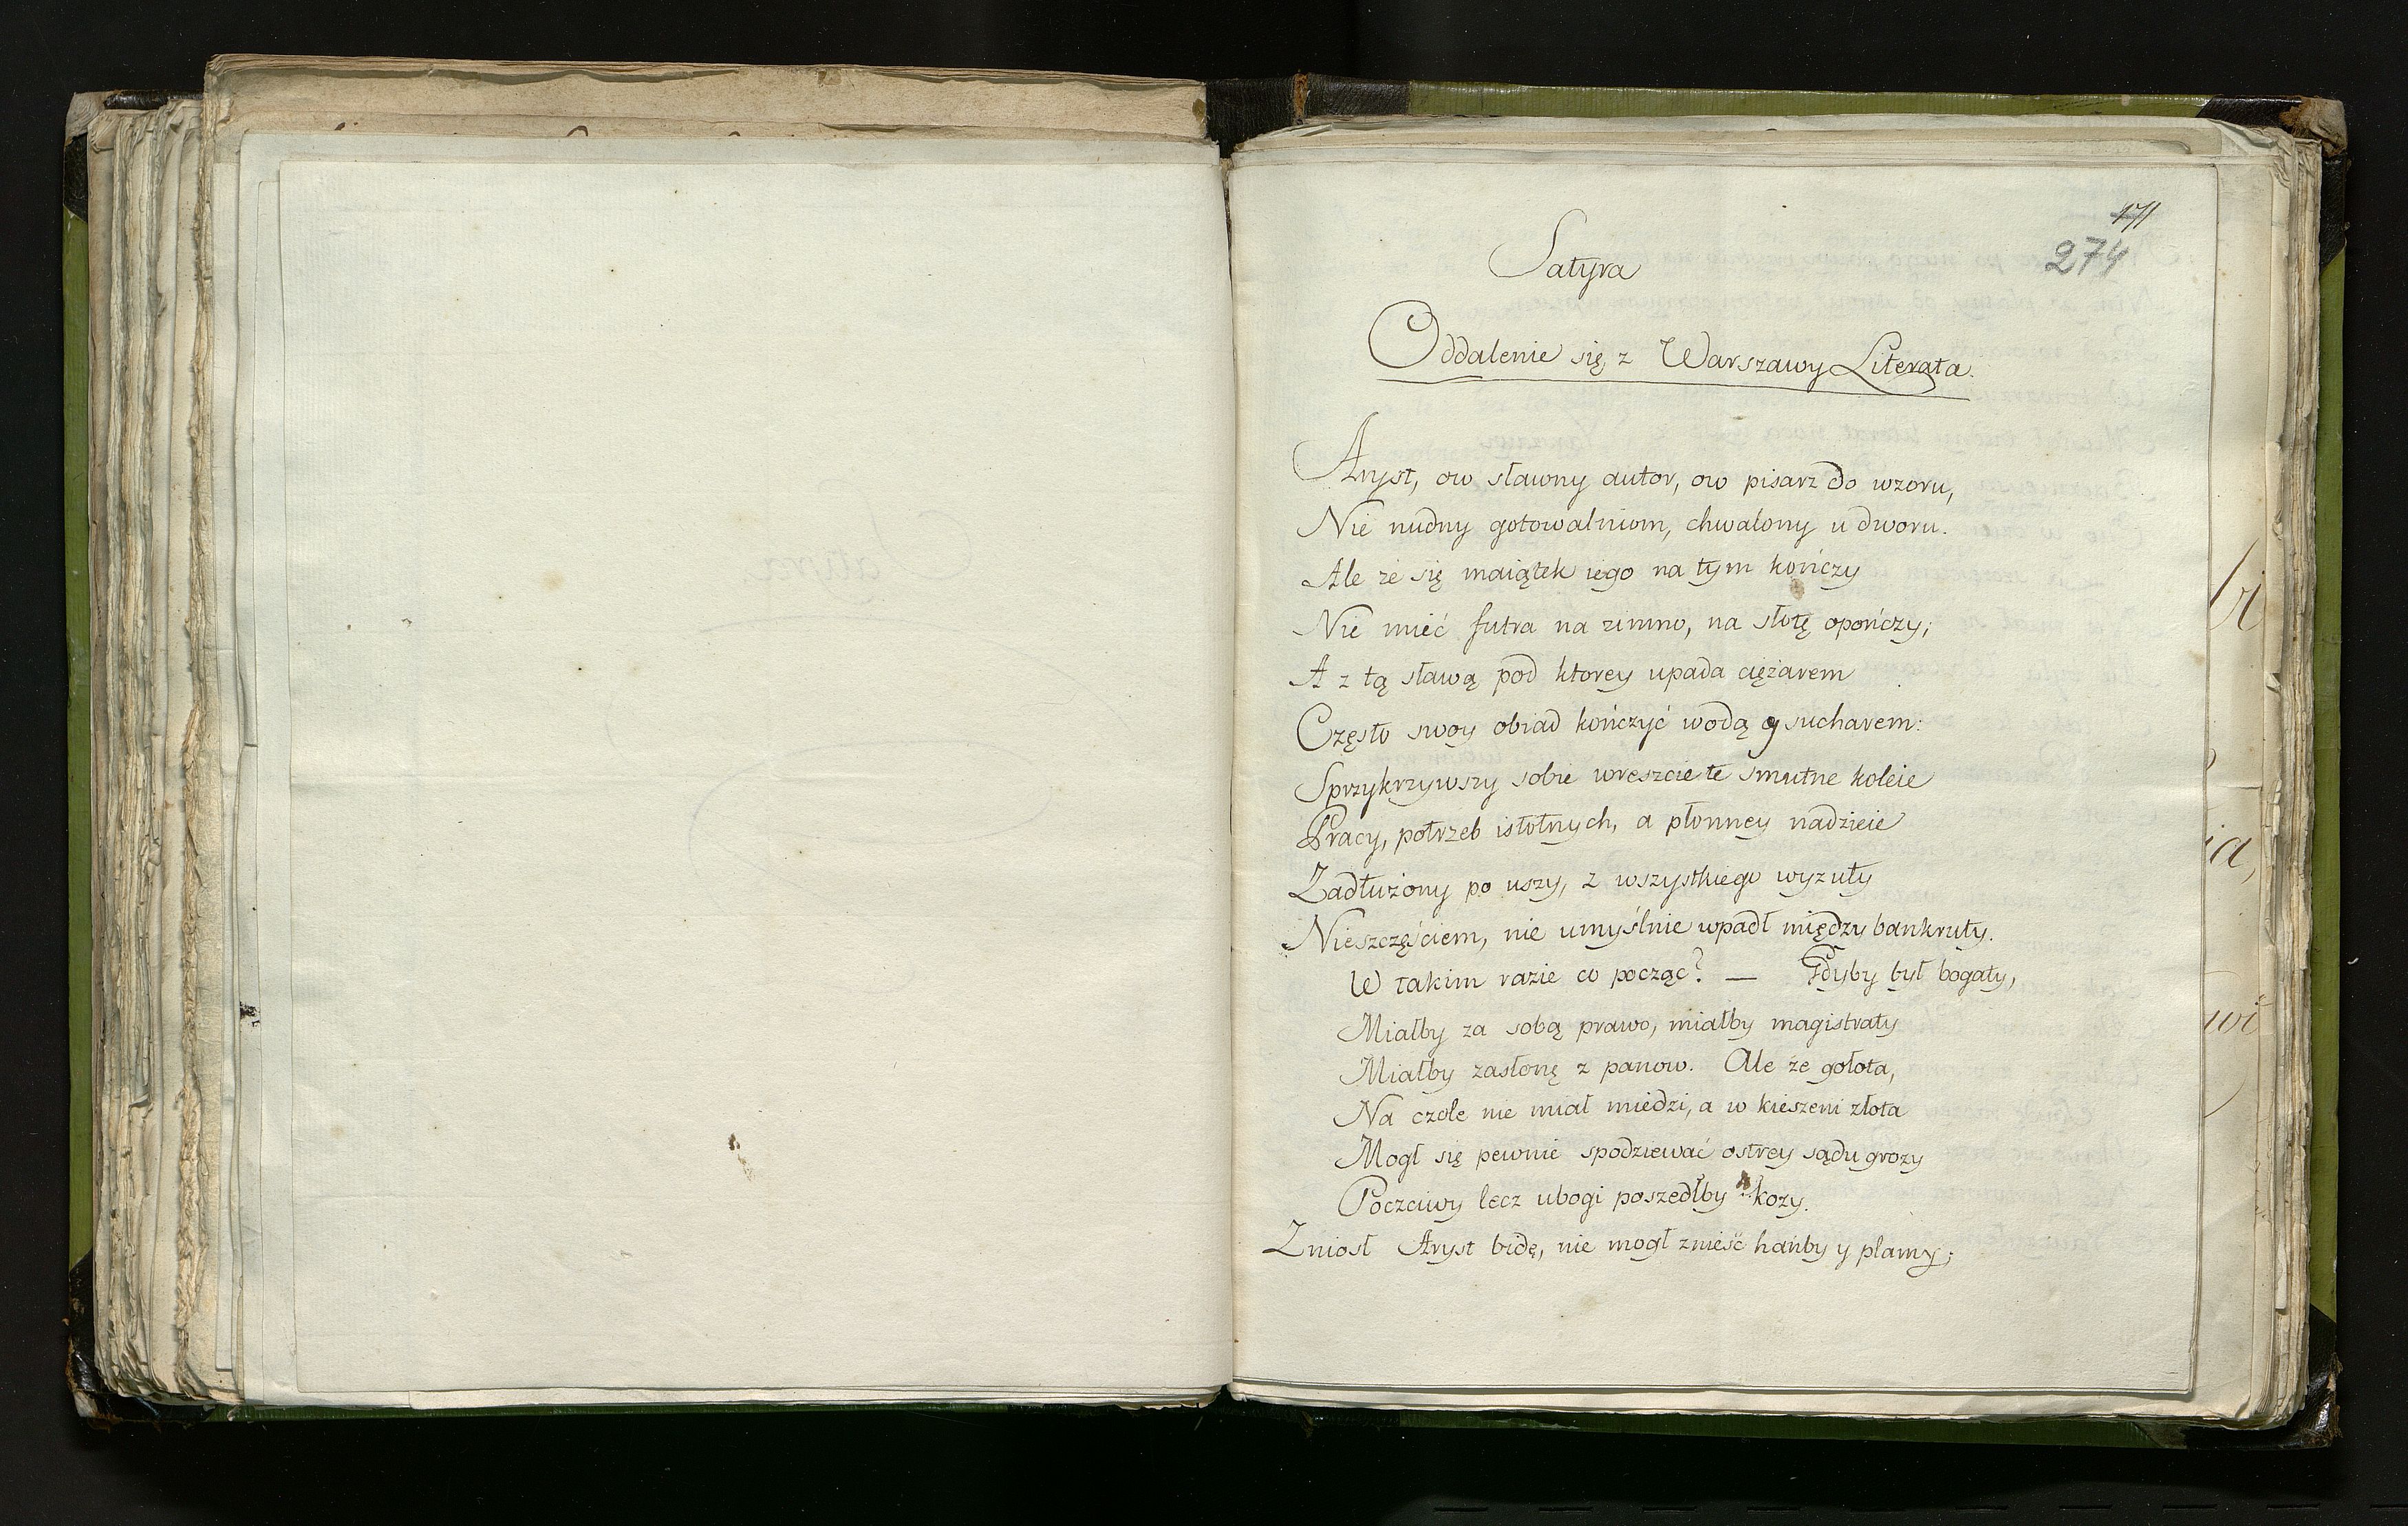 171
274
Satyra
Oddalenie się z Warszawy Literata.
Aryst, ow sławny autor, ow pisarz do wzoru,
Nie nudny gotowalniom, chwalony u dworu.
Ale że się maiątek iego na tym kończy
Nie mieć futra na zimno, na słotę opończy;
A z tą sławą pod ktorey upada ciężarem
Często swoy obiad kończyć wodą y sucharem:
Sprzykrzywszy sobie wreszcie te smutne koleie
Pracy, potrzeb istotnych, a płonney nadzieie
Zadłużony po uszy, z wszystkiego wyzuty
Nieszczęściem, nie umyślnie wpadł między bankruty.
W takim razie co począc? — Gdyby był bogaty,
Miałby za sobą prawo, miałby magistraty
Miałby zasłonę z panow. Ale że gołota,
Na czole nie miał miedzi, a w kieszeni złota
Mogł się pewnie spodziewać ostrey sądu grozy
Poczciwy lecz ubogi poszedłby kozy.
Zniosł Aryst bidę, nie mogł znieść hańby y plamy;